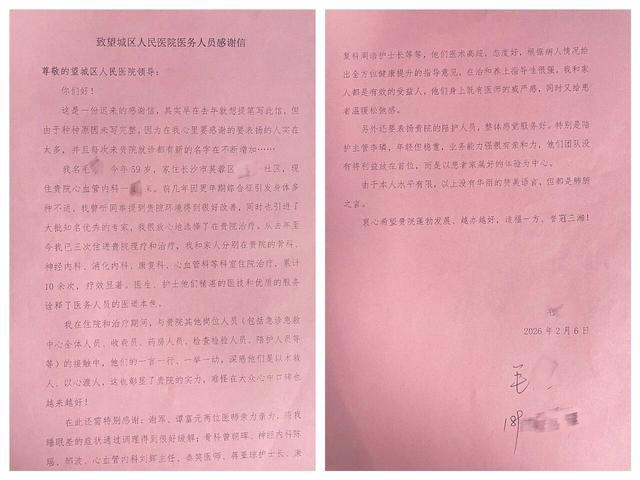 致望城区人民医院医务人员感谢信
尊敬的望城区人民医院领导：
你们好！
这是一份迟来的感谢信，其实早在去年就想提笔写此信，但
由于种种原因未写完整，因为在我心里要感谢的要表扬的人实在
太多，并且每次来贵院就诊都有新的名字在不断增加……
我名毛 今年59岁，家住长沙市芙蓉区 社区，现
住贵院心血管内科一 床。前几年因更年期综合征引发身体多
种不适，我曾听同事提到贵院环境得到很好改善，同时也引进了
大批知名优秀的专家，我很放心地选择了在贵院治疗。从去年至
今我已三次住进贵院理疗和治疗，我和家人分别在贵院的骨科、
神经内科、消化内科、康复科、心血管科等科室住院治疗，累计
10余次，疗效显著。医生、护士他们精湛的医技和优质的服务
诠释了医务人员的医道本色。
我在住院和治疗期间，与贵院其他岗位人员（包括急诊急救
中心全体人员、收费员、药房人员、检查检验人员、陪护人员等
等）的接触中，他们的一言一行、一举一动，深感他们是以术救
人、以心渡人，这也彰显了贵院的实力，难怪在大众心中口碑也
越来越好！
在此还需特别感谢：谢军、谭富元两位医师亲力亲为，将我
睡眠差的症状通过调理得到很好缓解；骨科曾朝晖、神经内科陈
瑶、郁波、心血管内科刘辉主任、娄昊医师、蒋亚琼护士长、康
复科周浩护士长等等，他们医术高超，态度好，根据病人情况给
出全方位健康提升的指导意见，在治和养上指导性很强，我和家
人都是有效的受益人，他们身上既有医师的威严感，同时又给患
者温暖松弛感。
另外还要表扬贵院的陪护人员，整体感觉服务好。特别是陪
护主管李璘，年轻但稳重，业务能力强很有亲和力，他们团队没
有得利益放在首位，而是以患者家属好的体验为中心。
由于本人水平有限，以上没有华丽的赞美语言，但都是肺腑
之言。
衷心希望贵院蓬勃发展、越办越好，造福一方、誉冠三湘！
2026年2月6日
毛
189